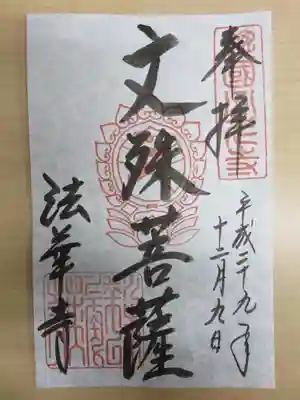 奉拝
平成二十九年
十二月九日
文殊菩薩
法華寺